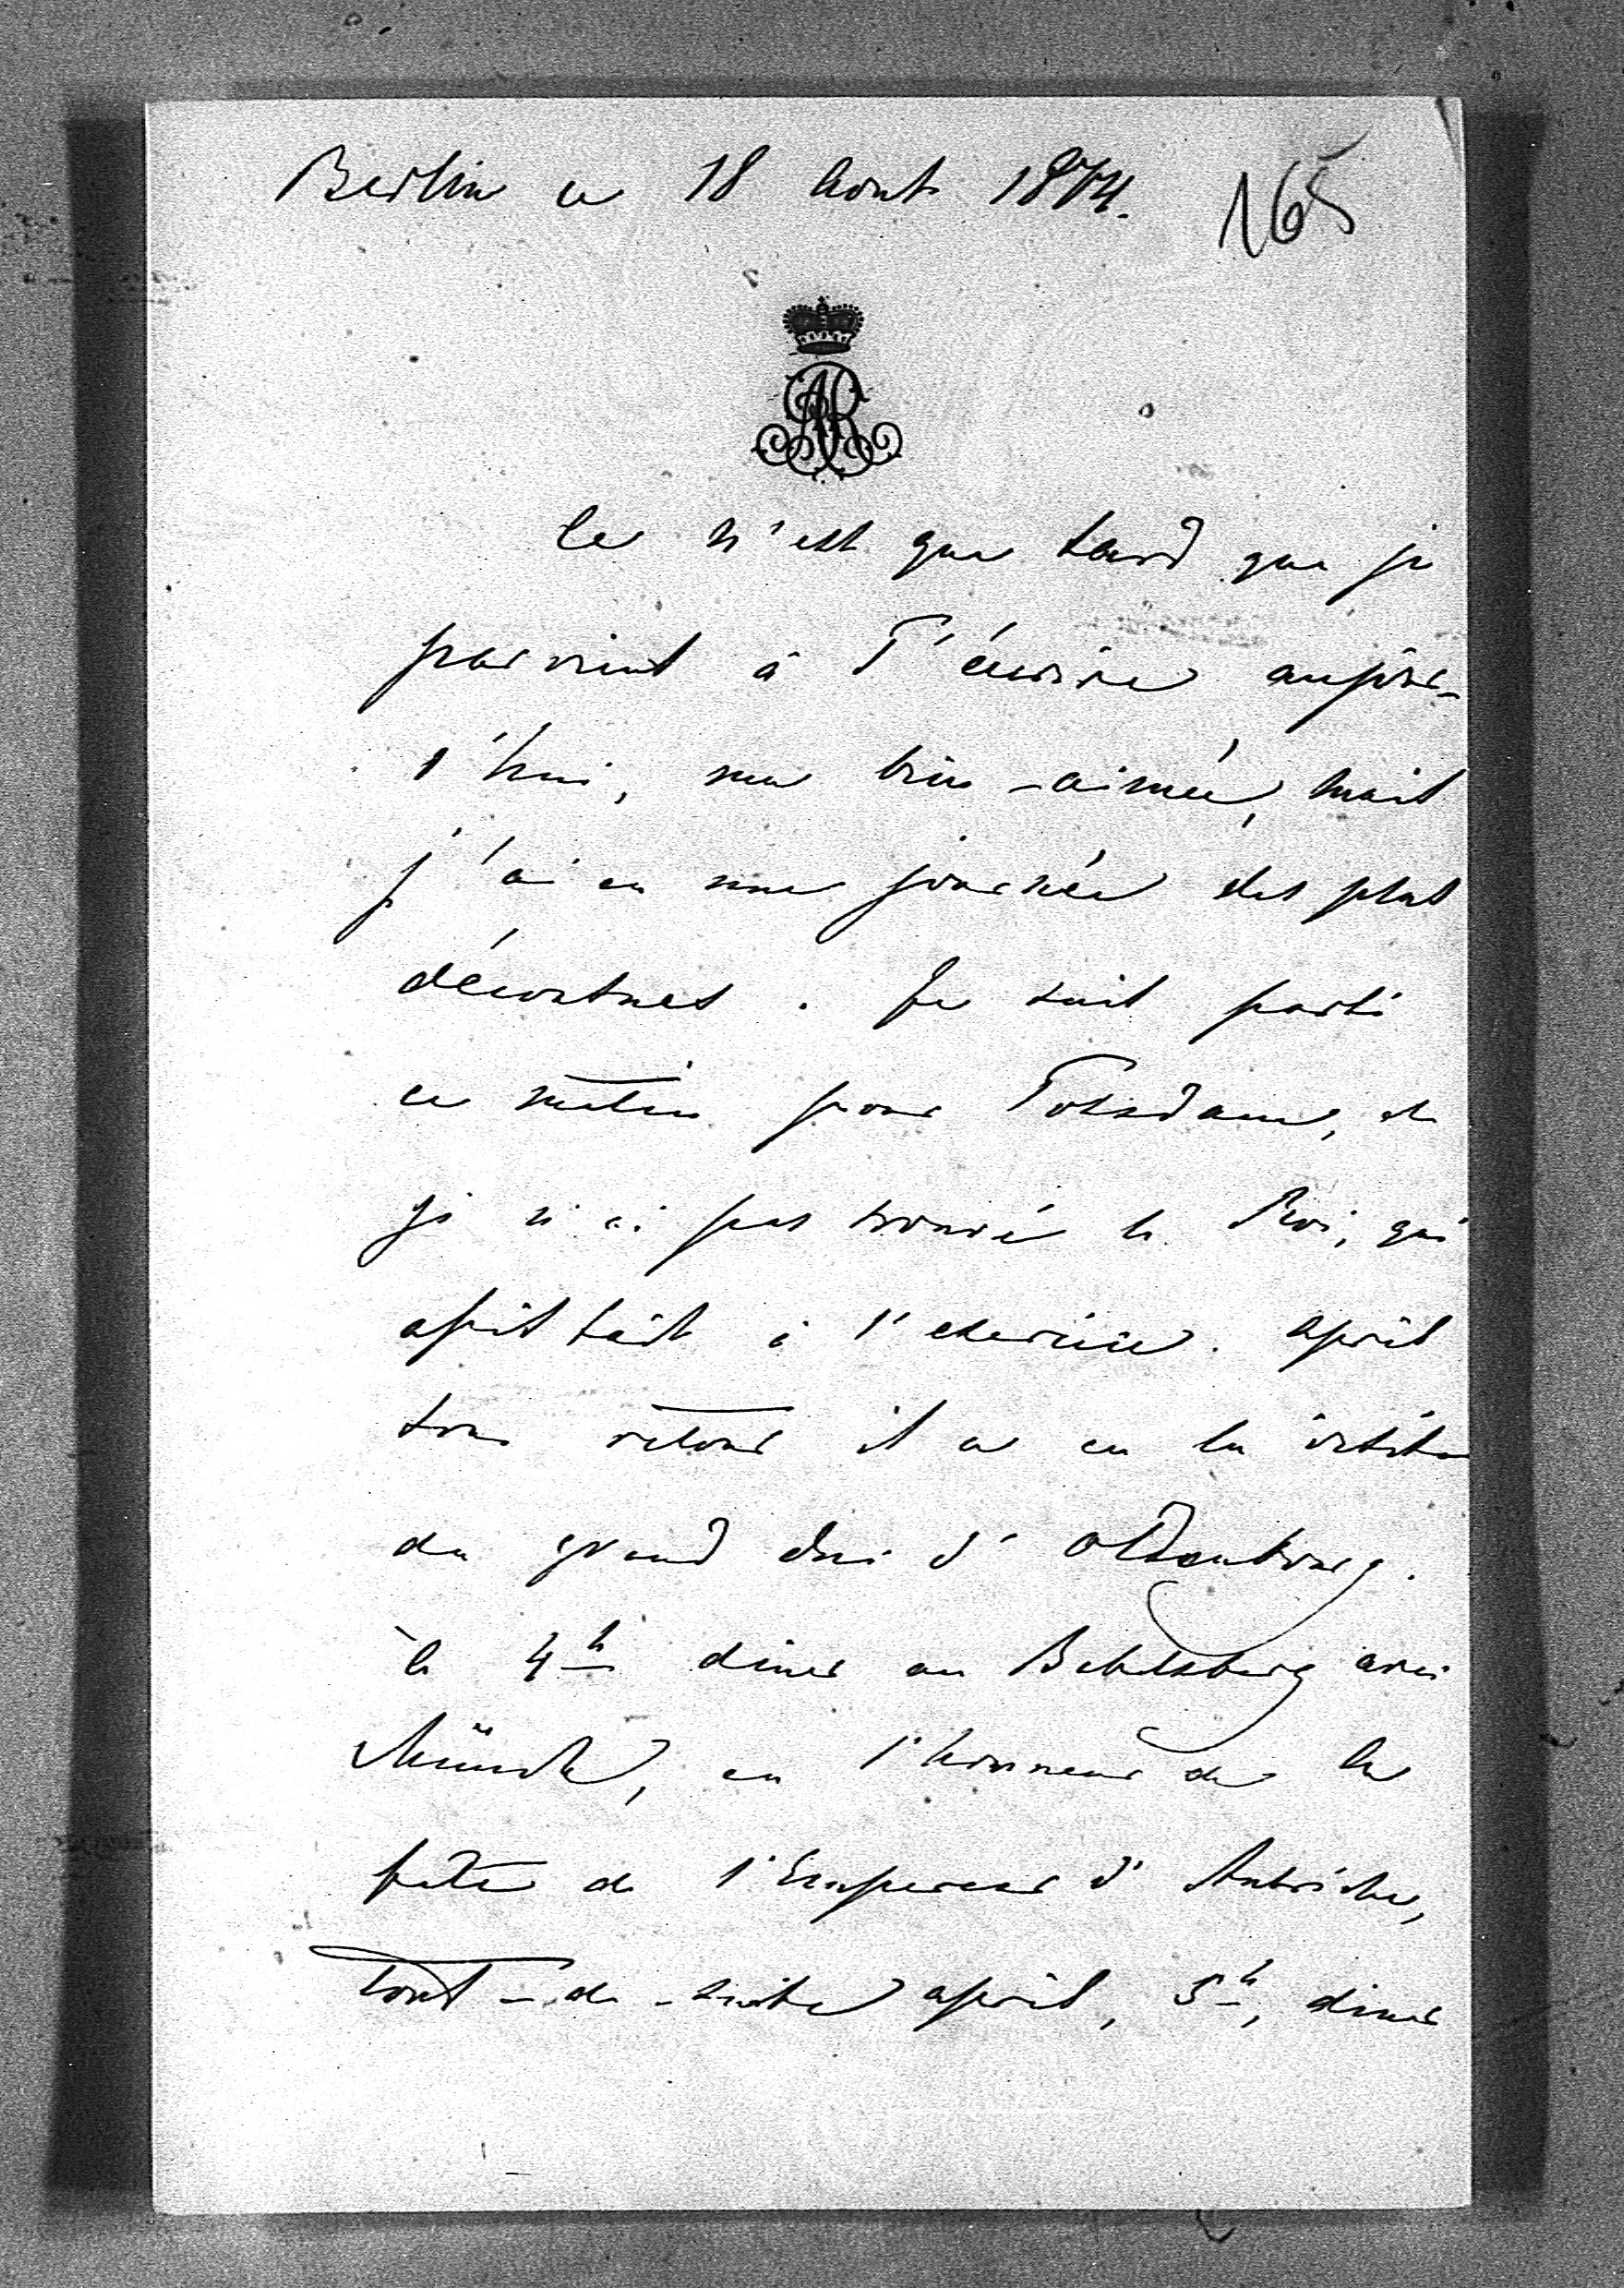 Berlin ce 18 Aout 1874.
165
AR
Ce n'est que tard que je
parviens à T'écrire aujour-
d'hui, ma bien-aimée, mais
j'ai eu une journée des plus
décousues. Je suis parti
ce matin pour Potsdam, et
je n'ai pas trouvé le Roi, qui
assistait à l'exercice. Après
son retour il a eu la visite
du grand duc d'Oldenbourg.
à 4h diner au Babelsberg avec
Münch, en l'honneur de la
fête de l'Empereur d'Autriche,
tout-de-suite après, 5h, diner